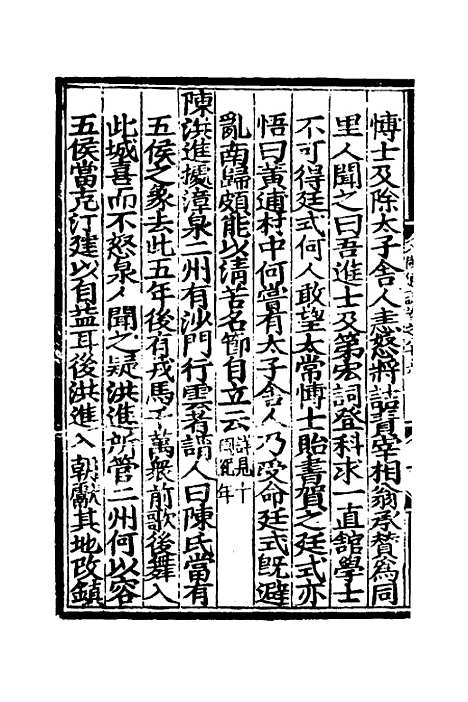 博士及除太子舍人恚怒將詰責宰相翁承贊為同
里人聞之曰吾進士及第宏詞登科求一直館學士
不可得廷式何人敢望太常博士貽書賀之廷式亦
悟曰黃連村中何嘗有太子舍人乃受命廷式旣避
亂南歸頗能以淸苦名節自立云詳見十國紀年
陳洪進據漳泉二州有沙門行雲者謂人曰陳氏當有
五侯之象去此五年後有戎馬千萬衆前歌後舞入
此城喜而不怒泉人聞之疑洪進所管二州何以容
五侯當克汀建以自益耳後洪進入朝獻其地改鎮